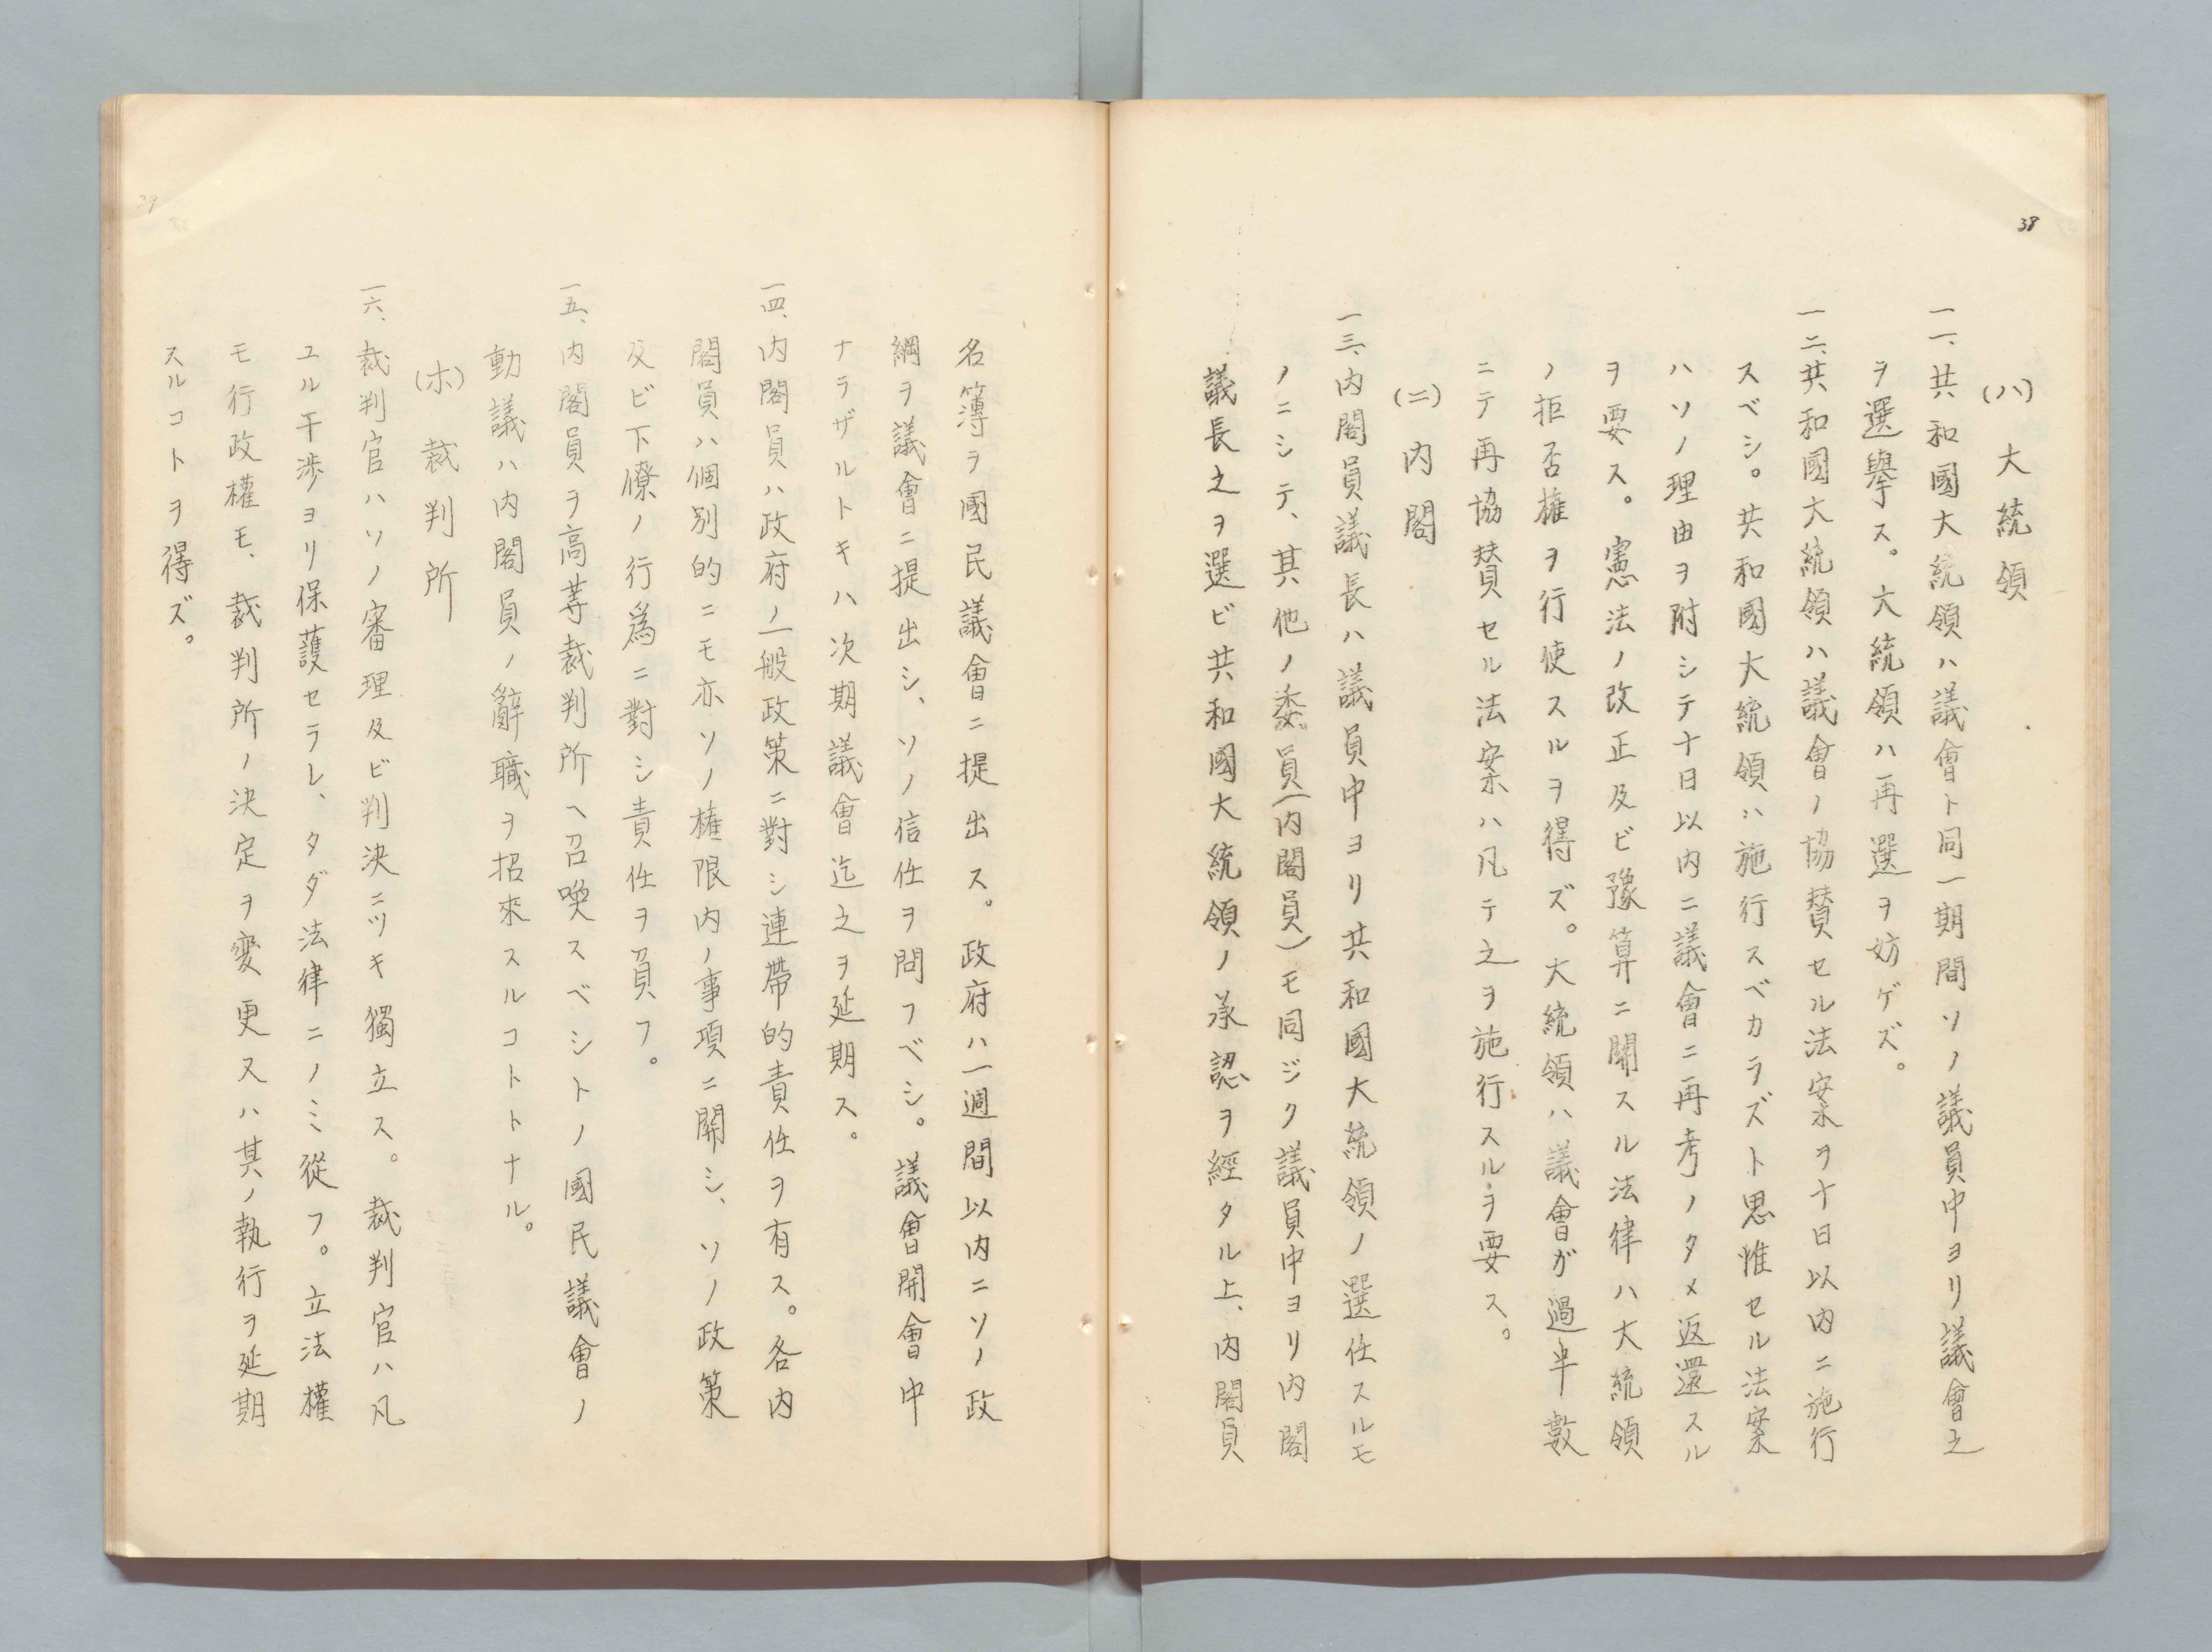 38
(ハ) 大統領
一一、共和國大統領ハ議會ト同一期間ソノ議員中ヨリ議會之
ヲ選擧ス。大統領ハ再選ヲ妨ゲズ。
一二、共和國大統領ハ議會ノ協賛セル法案ヲ十日以内ニ施行
スベシ。共和國大統領ハ施行スベカラズト思惟セル法案
ハソノ理由ヲ附シテ十日以内ニ議會ニ再考ノタメ返還スル
ヲ要ス。憲法ノ改正及ビ豫算ニ關スル法律ハ大統領
ノ拒否權ヲ行使スルヲ得ズ。大統領ハ議會ガ過半數
ニテ再協賛セル法案ハ凡テ之ヲ施行スルヲ要ス。
(ニ) 内閣
一三、内閣員議長ハ議員中ヨリ共和國大統領ノ選任スルモ
ノニシテ、其他ノ委員(内閣員)モ同ジク議員中ヨリ内閣
議長之ヲ選ビ共和國大統領ノ承認ヲ經タル上、内閣員
名簿ヲ國民議會ニ提出ス。政府ハ一週間以内ニソノ政
綱ヲ議會ニ提出シ、ソノ信任ヲ問フベシ。議會開會中
ナラザルトキハ次期議會迄之ヲ延期ス。
一四、内閣員ハ政府ノ一般政策ニ對シ連帶的責任ヲ有ス。各内
閣員ハ個別的ニモ亦ソノ權限内ノ事項ニ關シ、ソノ政策
及ビ下僚ノ行爲ニ對シ責任ヲ負フ。
一五、内閣員ヲ高等裁判所ヘ召喚スベシトノ國民議會ノ
動議ハ内閣員ノ辭職ヲ招來スルコトトナル。
(ホ) 裁判所
一六、裁判官ハソノ審理及ビ判決ニツキ獨立ス。裁判官ハ凡
ユル干渉ヨリ保護セラレ、タダ法律ニノミ從フ。立法權
モ行政權モ、裁判所ノ決定ヲ変更又ハ其ノ執行ヲ延期
スルコトヲ得ズ。